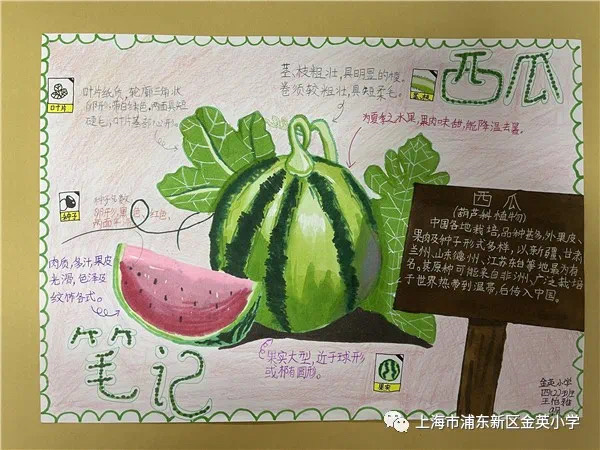 西瓜
茎、枝粗壮,具明显的棱。
卷须较粗壮,具短柔毛。
茎、枝
叶片纸质,轮廓三角状
卵形,带白绿色,两面具短
硬毛,叶片基部心形。
叶片
为夏季之水果,果肉味甜,能降温去暑。
种子多数,
卵形,黑色、红色,
两面平滑
种子
肉质,多汁,果皮
光滑,色泽及
纹饰各式。
西瓜
(葫芦科植物)
中国各地栽培,品种甚多,外果皮、
果肉及种子形式多样,以新疆、甘肃
兰州、山东德州、江苏东台等地最为有
名。其原种可能来自非洲,广泛栽培
于世界热带到温带,自传入中国。
笔记
果实大型,近于球形
或椭圆形。
果实
金英小学
四(2)班
上海市浦东新区金英小学